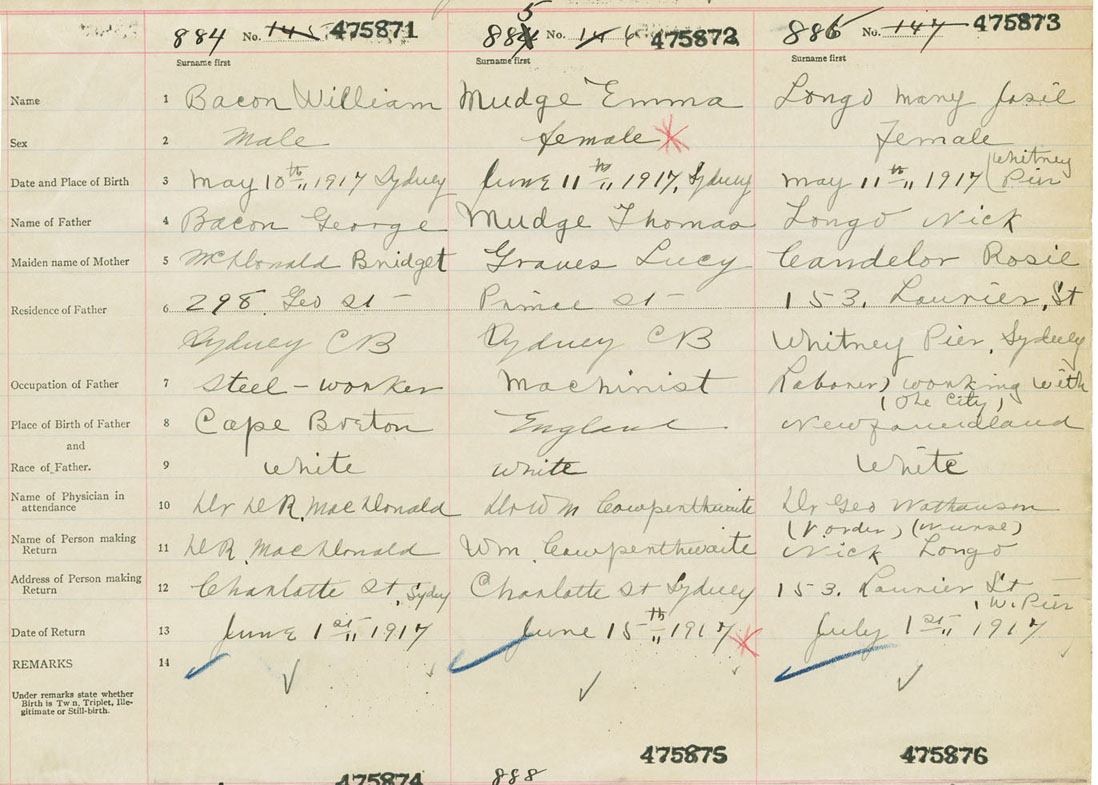 884 No. 145 475871
885 No. 146 475872
886 No. 147 475873
Surname first Surname first Surname first
Name 1 Bacon William Mudge Emma Longo Mary Josie
Sex 2 Male female female
Date and Place of Birth 3 May 10th 1917 Sydney June 11th 1917, Sydney May 11th 1917 (Whitney Pier
Name of Father 4 Bacon George Mudge Thomas Longo Nick
Maiden name of Mother 5 McDonald Bridget Graves Lucy Candelor Rosie
Residence of Father 6 298 Geo St - Prince St - 153. Laurier, St
Sydney CB Sydney CB Whitney Pier, Sydney
Occupation of Father 7 Steel-worker Machinist Laborer) working with
(the City)
Place of Birth of Father 8 Cape Breton England Newfoundland
and
Race of Father. 9 White White White
Name of Physician in
attendance 10 Dr D R. MacDonald Dr Wm Cowpenthwaite Dr Geo
(Nurse)
Name of Person making
Return 11 D R. MacDonald Wm Cowpenthwaite Nick Longo
Address of Person making
Return 12 Charlotte St, Sydney Charlotte St Sydney 153. Laurier St
, W. Pier
Date of Return 13 June 1st 1917 June 15th 1917 July 1st 1917
REMARKS 14
Under remarks state whether
Birth is Twin, Triplet, Ille-
gitimate or Still-birth.
475874 888 475875 475876